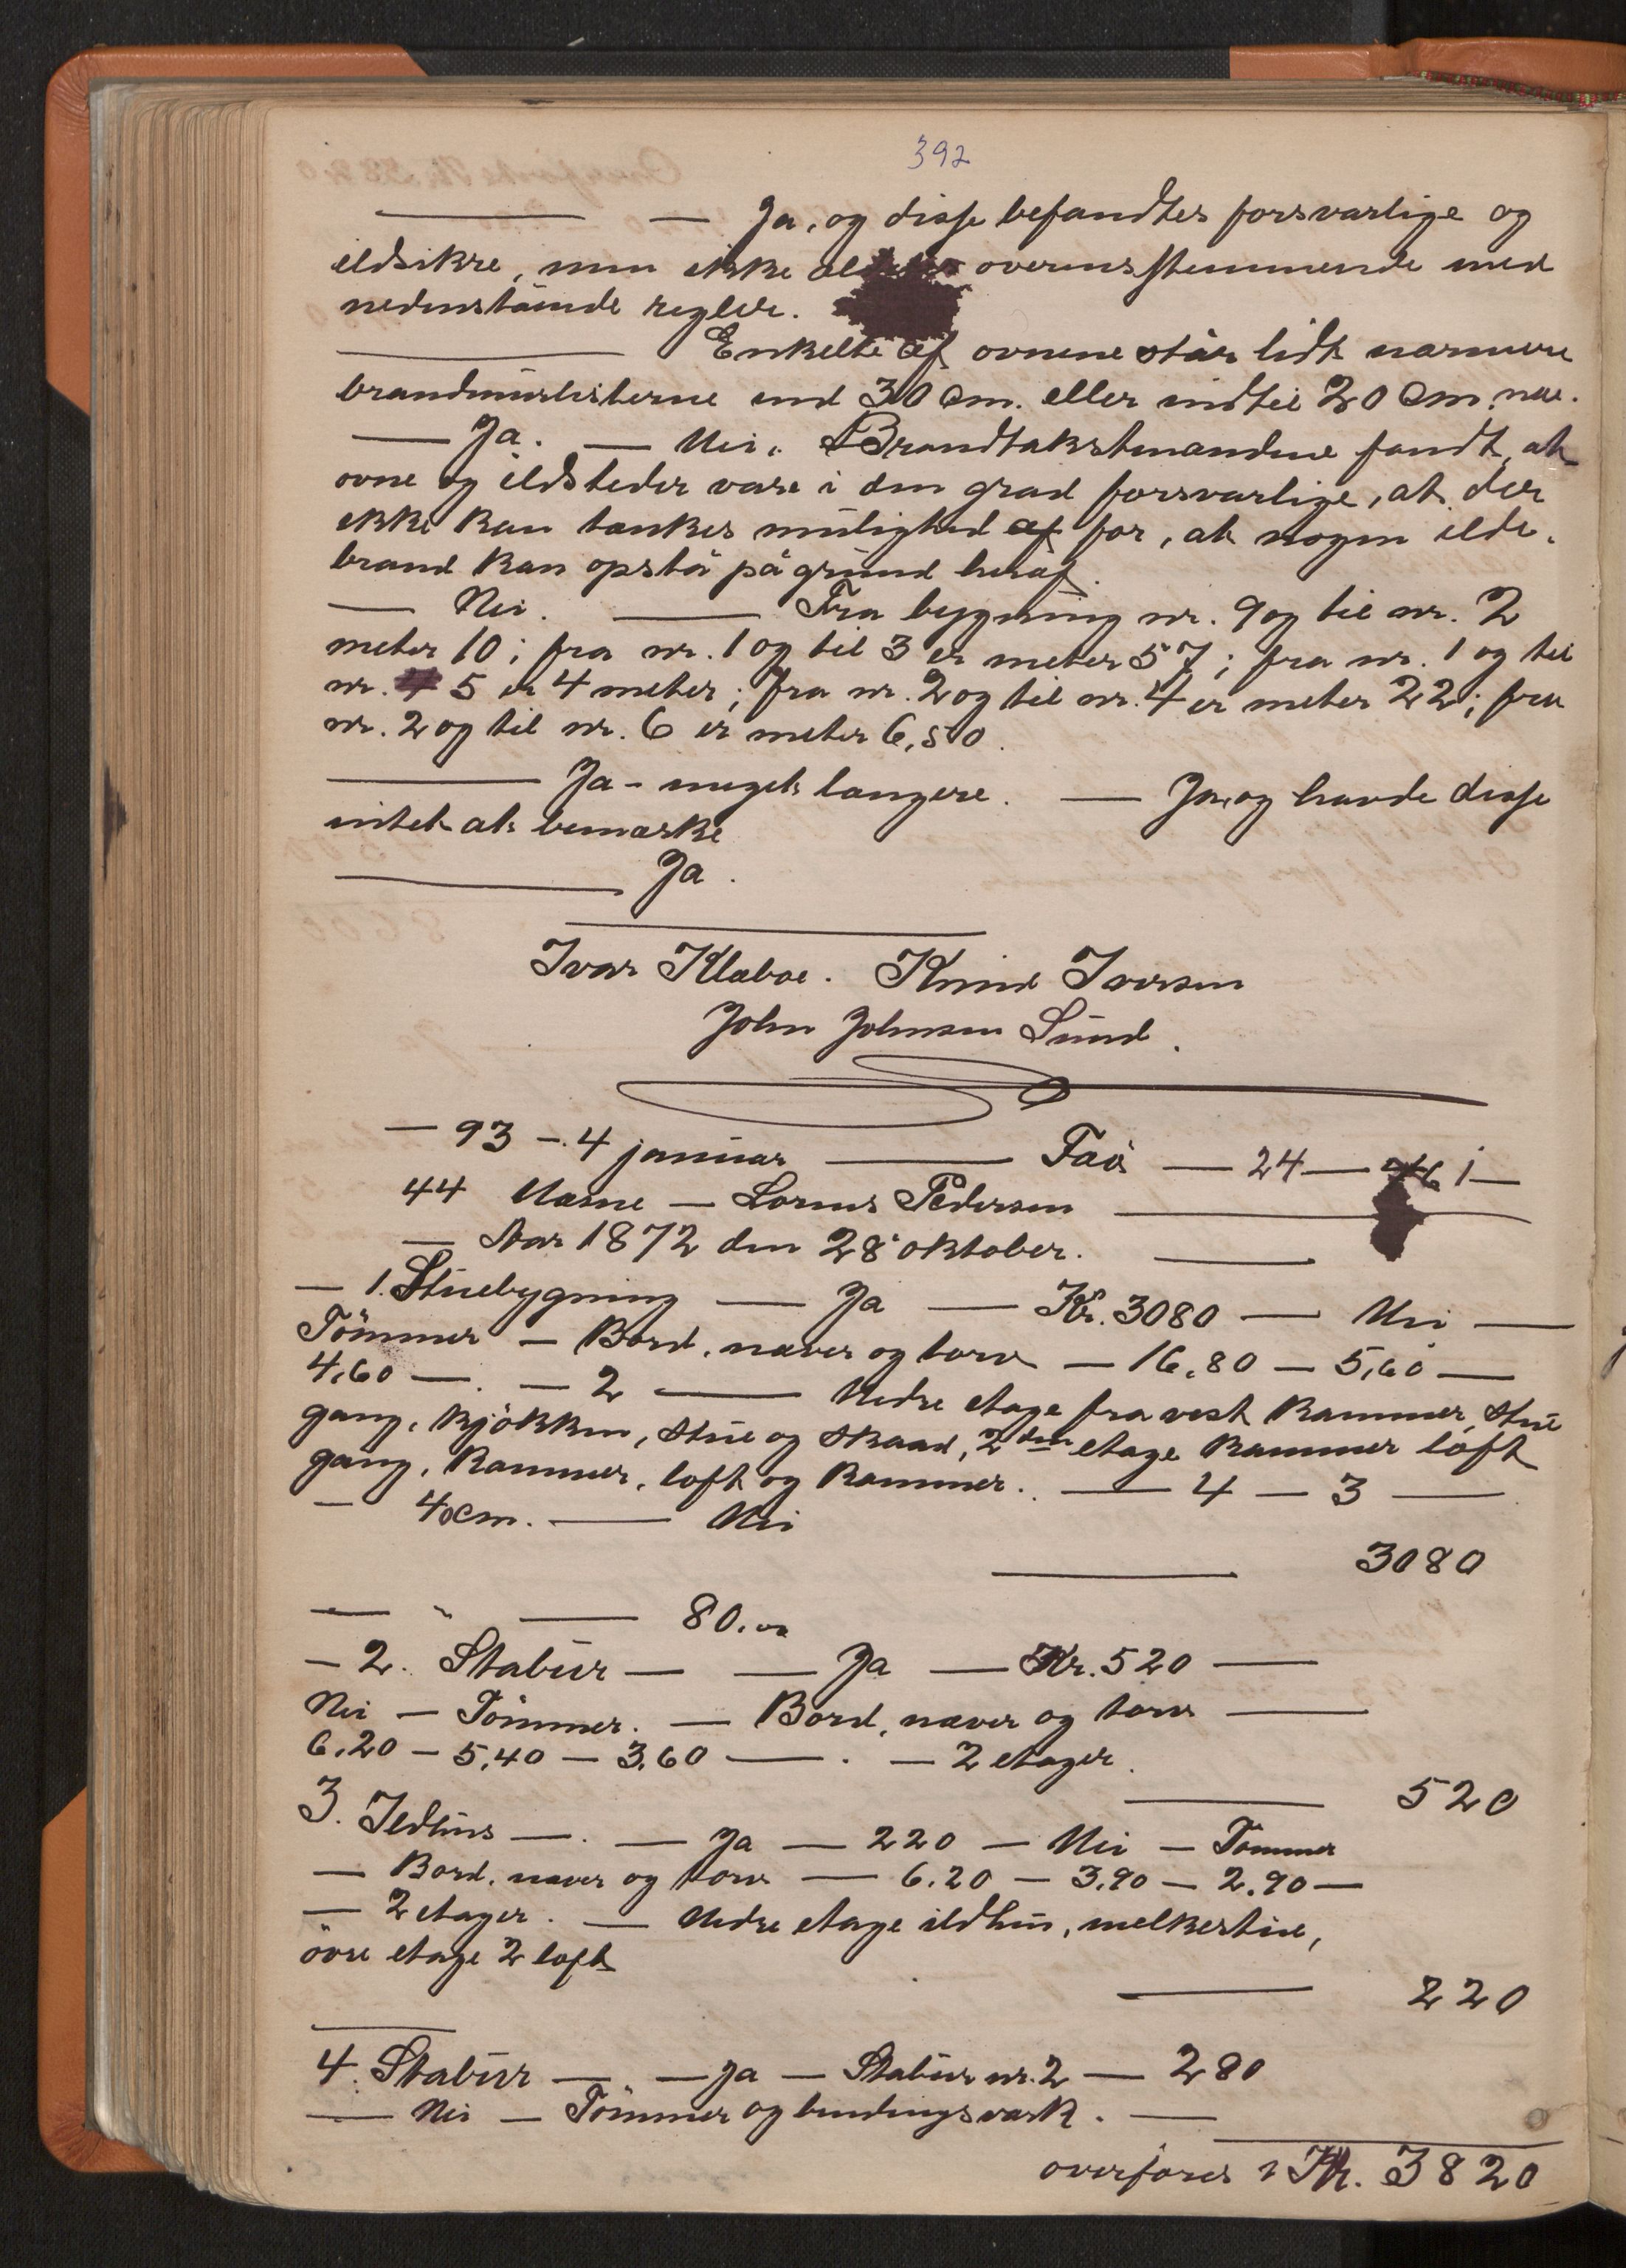 392
— — Ja, og disse befandtes forsvarlige og
ildsikre, men ikke overensstemmende med
nedenstående regler.
— Enkelte af ovnene står lidt nærmere
brandmurlisterne end 30 cm. eller indtil 20 cm. nær.
— Ja. — Nei. Brandtakstmændene fandt, at
ovne og ildsteder vare i den grad forsvarlige, at der
ikke kan tænkes mulighed af for, at nogen ilde-
brand kan opstå på grund heraf.
— Nei. — Fra bygning nr. 9 og til nr. 2
meter 10; fra nr. 1 og til 3 er meter 57; fra nr. 1 og til
nr. 5 er 4 meter; fra nr. 2 og til nr. 4 er meter 22; fra
nr. 2 og til nr. 6 er meter 6,50.
— Ja - meget længere. — Ja, og havde disse
intet at bemærke
— Ja.
Ivar Klæboe. Knud Iversen
John Johnsen Sund.
— 93 — 4 januar — Taö — 24 — 1 —
44 Næsne — Lorens Pedersen —
— var 1872 den 28 oktober. —
— 1. Stuebygning — Ja — Kr. 3080 — Nei —
Tömmer — Bord, næver og torv — 16,80 — 5,60 —
4,60 —. — 2 — Nedre etage fra vest kammer, stue
gang, kjökken, stue og skaad, 2den etage kammer loft
gang, kammer, loft og kammer. — 4 — 3 —
— 40cm. — Nei
— 3080
— " — 80.
— 2. Stabur — — Ja — Kr. 520 —
Nei — Tömmer. — Bord, næver og torv —
6,20 — 5,40 — 3,60 —. — 2 etager.
— 520
3. Ildhus —. — Ja — 220 — Nei — Tömmer
— Bord, næver og torv — 6,20 — 3,90 — 2,90 —
— 2 etager. — Nedre etage ildhus, melkestue,
övre etage 2 loft
— 220
4. Stabur —. — Ja — Stabur nr. 2 — 280
— Nei — Tömmer og bindingsværk. —
overföres Kr. 3820